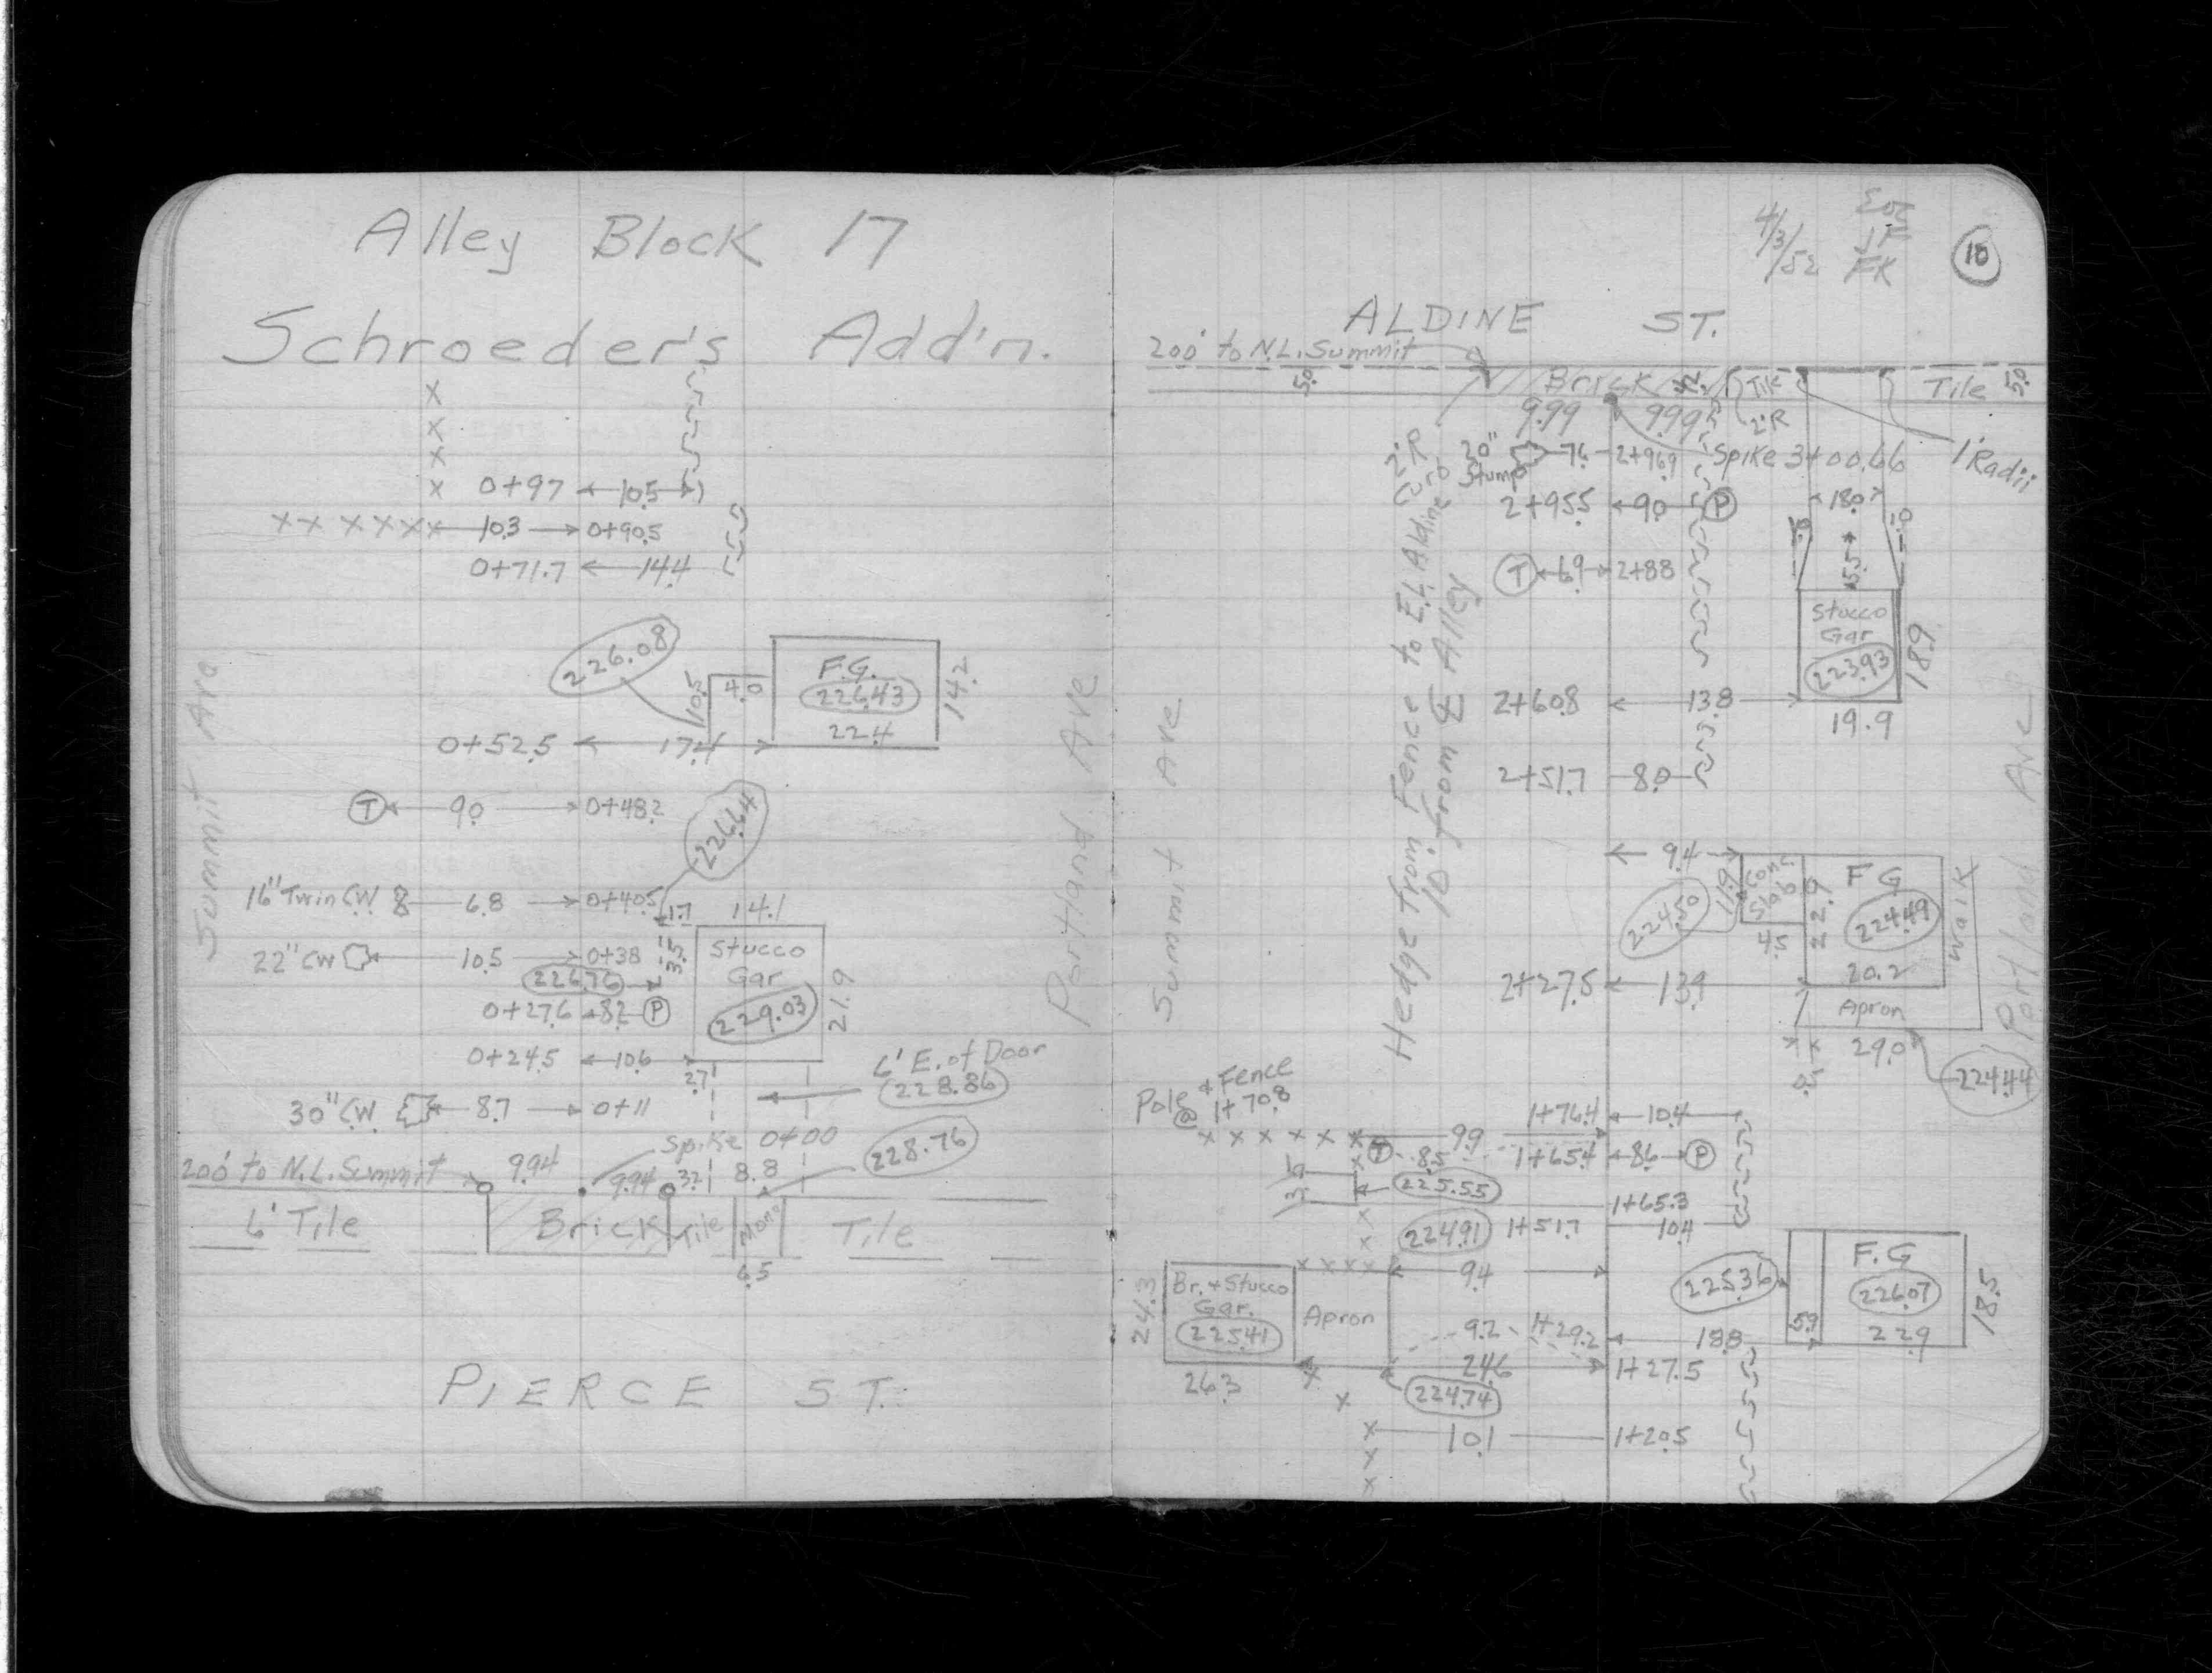 Alley Block 17
Schroeder's Add'n.
0+97 10.5
10.3 0+90.5
0+71.7 14.4
226.08
10.5 4.0
F.G.
226.43
22.4
14.2
0+52.5 17.4
T 9.0 0+48.2
226.64
16" Twin CW 6.8 0+40.5
1.7 14.1
22" CW 10.5 0+38
3.5
226.76
Stucco
Gar
229.03
21.9
0+27.6 8.2 P
0+24.5 10.6
2.7
6' E. of Door
228.86
30" CW 8.7 0+11
Spike 0+00
228.76
200' to N.L. Summit 9.94 9.94 3.2 8.8
6' Tile Brick Tile Mono Tile
6.5
PIERCE ST.
Summit Ave
Portland Ave
4/3/52
JF
FK
10
ALDINE ST.
200' to N.L. Summit
5.0
Brick
Tile
Tile
5.0
9.99 9.99
2'R
20" Stump 7.6 2+96.9
Spike 3+00.66
1' Radii
2+95.5 9.0 P
18.0
1.0
5.5
T 6.9 2+88
Stucco
Gar
223.93
18.9
19.9
2+60.8 13.8
2+51.7 8.0
Hedge from Fence to E.L. Aldine
10' from ℄ Alley
Summit Ave
Portland Ave
9.4
Conc
Slab
11.9
4.5
224.50
F G
224.49
22.9
20.2
Walk
2+27.5 13.9
Apron
29.0
0.5
224.44
Pole & Fence
@ 1+70.8
9.9
1+76.4 10.4
T 8.5 1+65.4 8.6 P
3.5
225.55
1+65.3
224.91 1+51.7 10.4
9.4
24.3
Br. + Stucco
Gar.
225.41
26.3
Apron
225.36
5.9
F.G
226.07
22.9
18.5
9.2 1+29.2
18.8
24.6 1+27.5
224.74
10.1 1+20.5